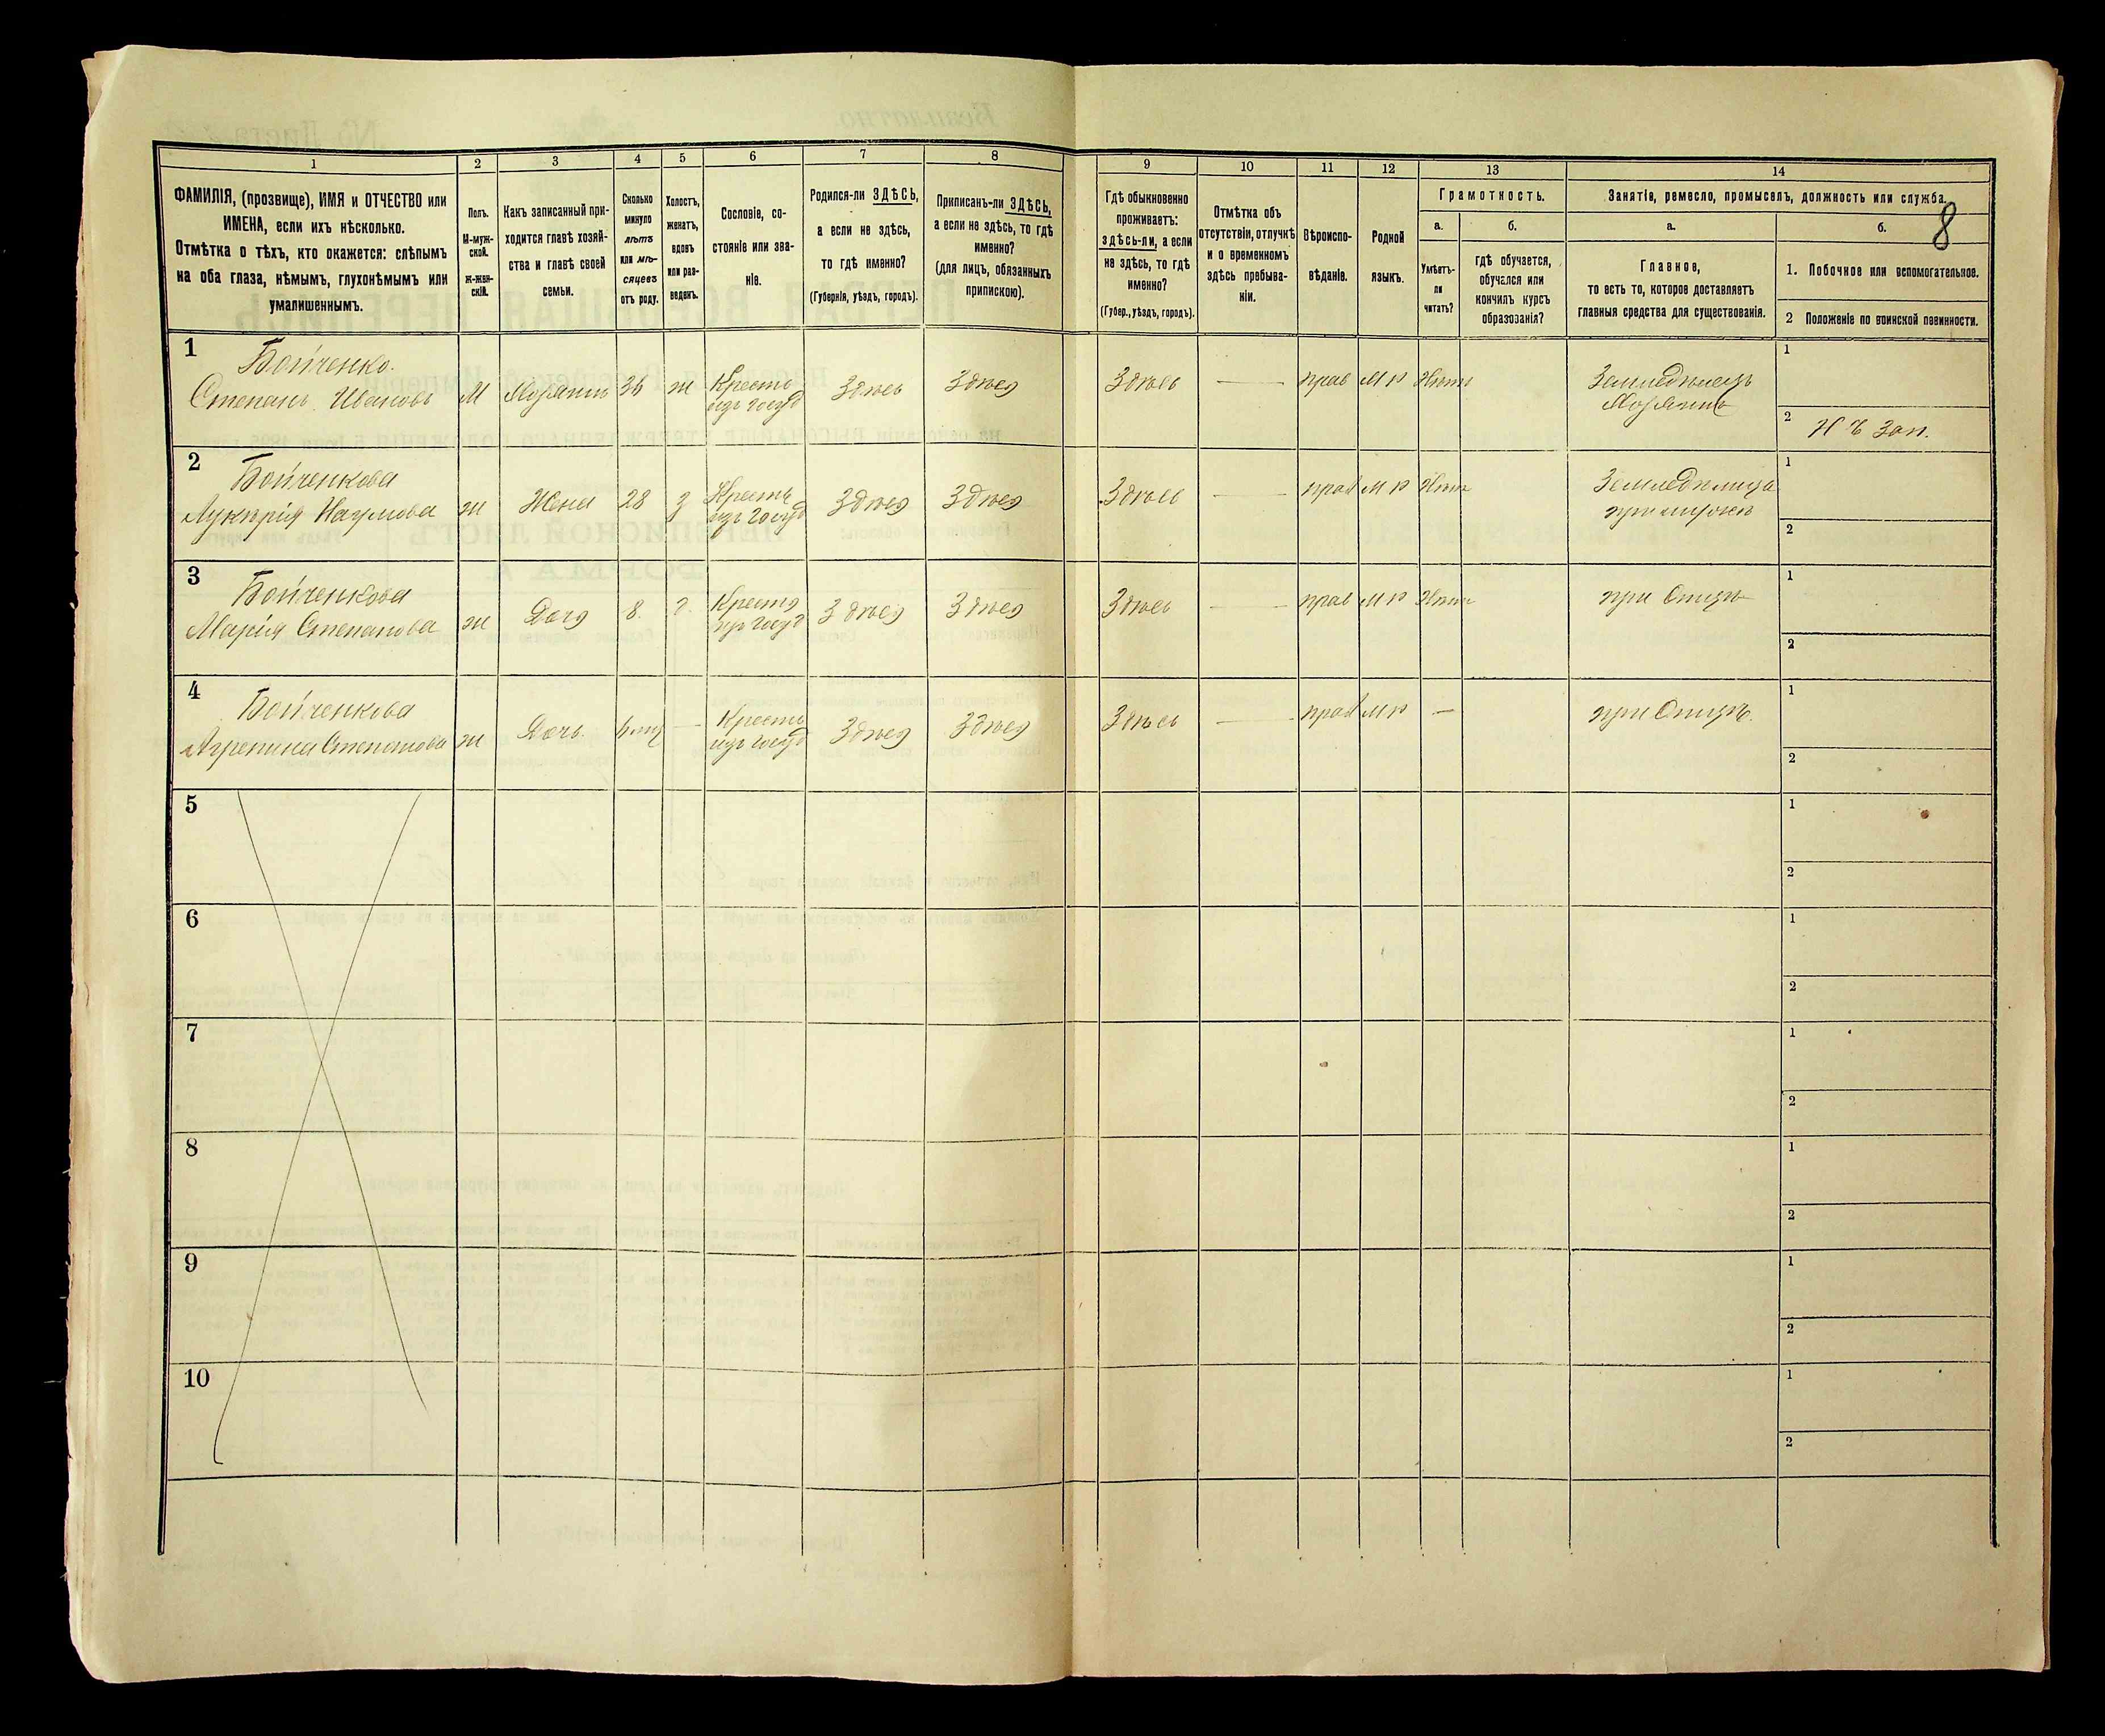 8
1
2
3
4
5
6
7
8
9
10
11
12
13
14
ФАМИЛІЯ, (прозвище), ИМЯ и ОТЧЕСТВО или
ИМЕНА, если ихъ нѣсколько.
Отмѣтка о тѣхъ, кто окажется: слѣпымъ
на оба глаза, нѣмымъ, глухонѣмымъ или
умалишеннымъ.
Полъ.
М-муж-
ской.
ж-жен-
скій.
Какъ записанный при-
ходится главѣ хозяй-
ства и главѣ своей
семьи.
Сколько
минуло
лѣтъ
или мѣ-
сяцевъ
отъ роду.
Холостъ,
женатъ,
вдовъ
или раз-
веденъ.
Сословіе, со-
стояніе или зва-
ніе.
Родился-ли ЗДѢСЬ,
а если не здѣсь,
то гдѣ именно?
(Губернія, уѣздъ, городъ).
Приписанъ-ли ЗДѢСЬ,
а если не здѣсь, то гдѣ
именно?
(для лицъ, обязанныхъ
припискою).
Гдѣ обыкновенно
проживаетъ:
здѣсь-ли, а если
не здѣсь, то гдѣ
именно?
(Губер., уѣздъ, городъ).
Отмѣтка объ
отсутствіи, отлучкѣ
и о временномъ
здѣсь пребыва-
ніи.
Вѣроиспо-
вѣданіе.
Родной
языкъ.
Грамотность.
а.
Умѣетъ-
ли
читать?
б.
гдѣ обучается,
обучался или
кончилъ курсъ
образованія?
Занятіе, ремесло, промыселъ, должность или служба.
а.
Главное,
то есть то, которое доставляетъ
главныя средства для существованія.
б.
1. Побочное или вспомогательное.
2 Положеніе по воинской повинности.
1
Бойченко.
Степанъ Ивановъ
М
Хозяинъ
36
ж
Крестъ
изъ госуд
Здѣсь
Здѣсь
Здѣсь
—
прав
М р
Нѣтъ
Земледѣлецъ
Хозяинъ
1
2
Н Ч Зап.
2
Бойченкова
Лукерія Наумова
ж
Жена
28
з
Крестъ
изъ госуд
Здѣсь
Здѣсь
Здѣсь
—
прав
М р
Нѣтъ
Земледѣлица
при мужѣ
1
2
3
Бойченкова
Марія Степанова
ж
Дочь
8.
Крестъ
изъ госуд
Здѣсь
Здѣсь
Здѣсь
—
прав
М р
Нѣтъ
при Отцѣ
1
2
4
Бойченкова
Агрепина Степанова
ж
Дочь.
—
Крестъ
изъ госуд
Здѣсь
Здѣсь
Здѣсь
—
прав
М р
—
при Отцѣ.
1
2
5
1
2
6
1
2
7
1
2
8
1
2
9
1
2
10
1
2